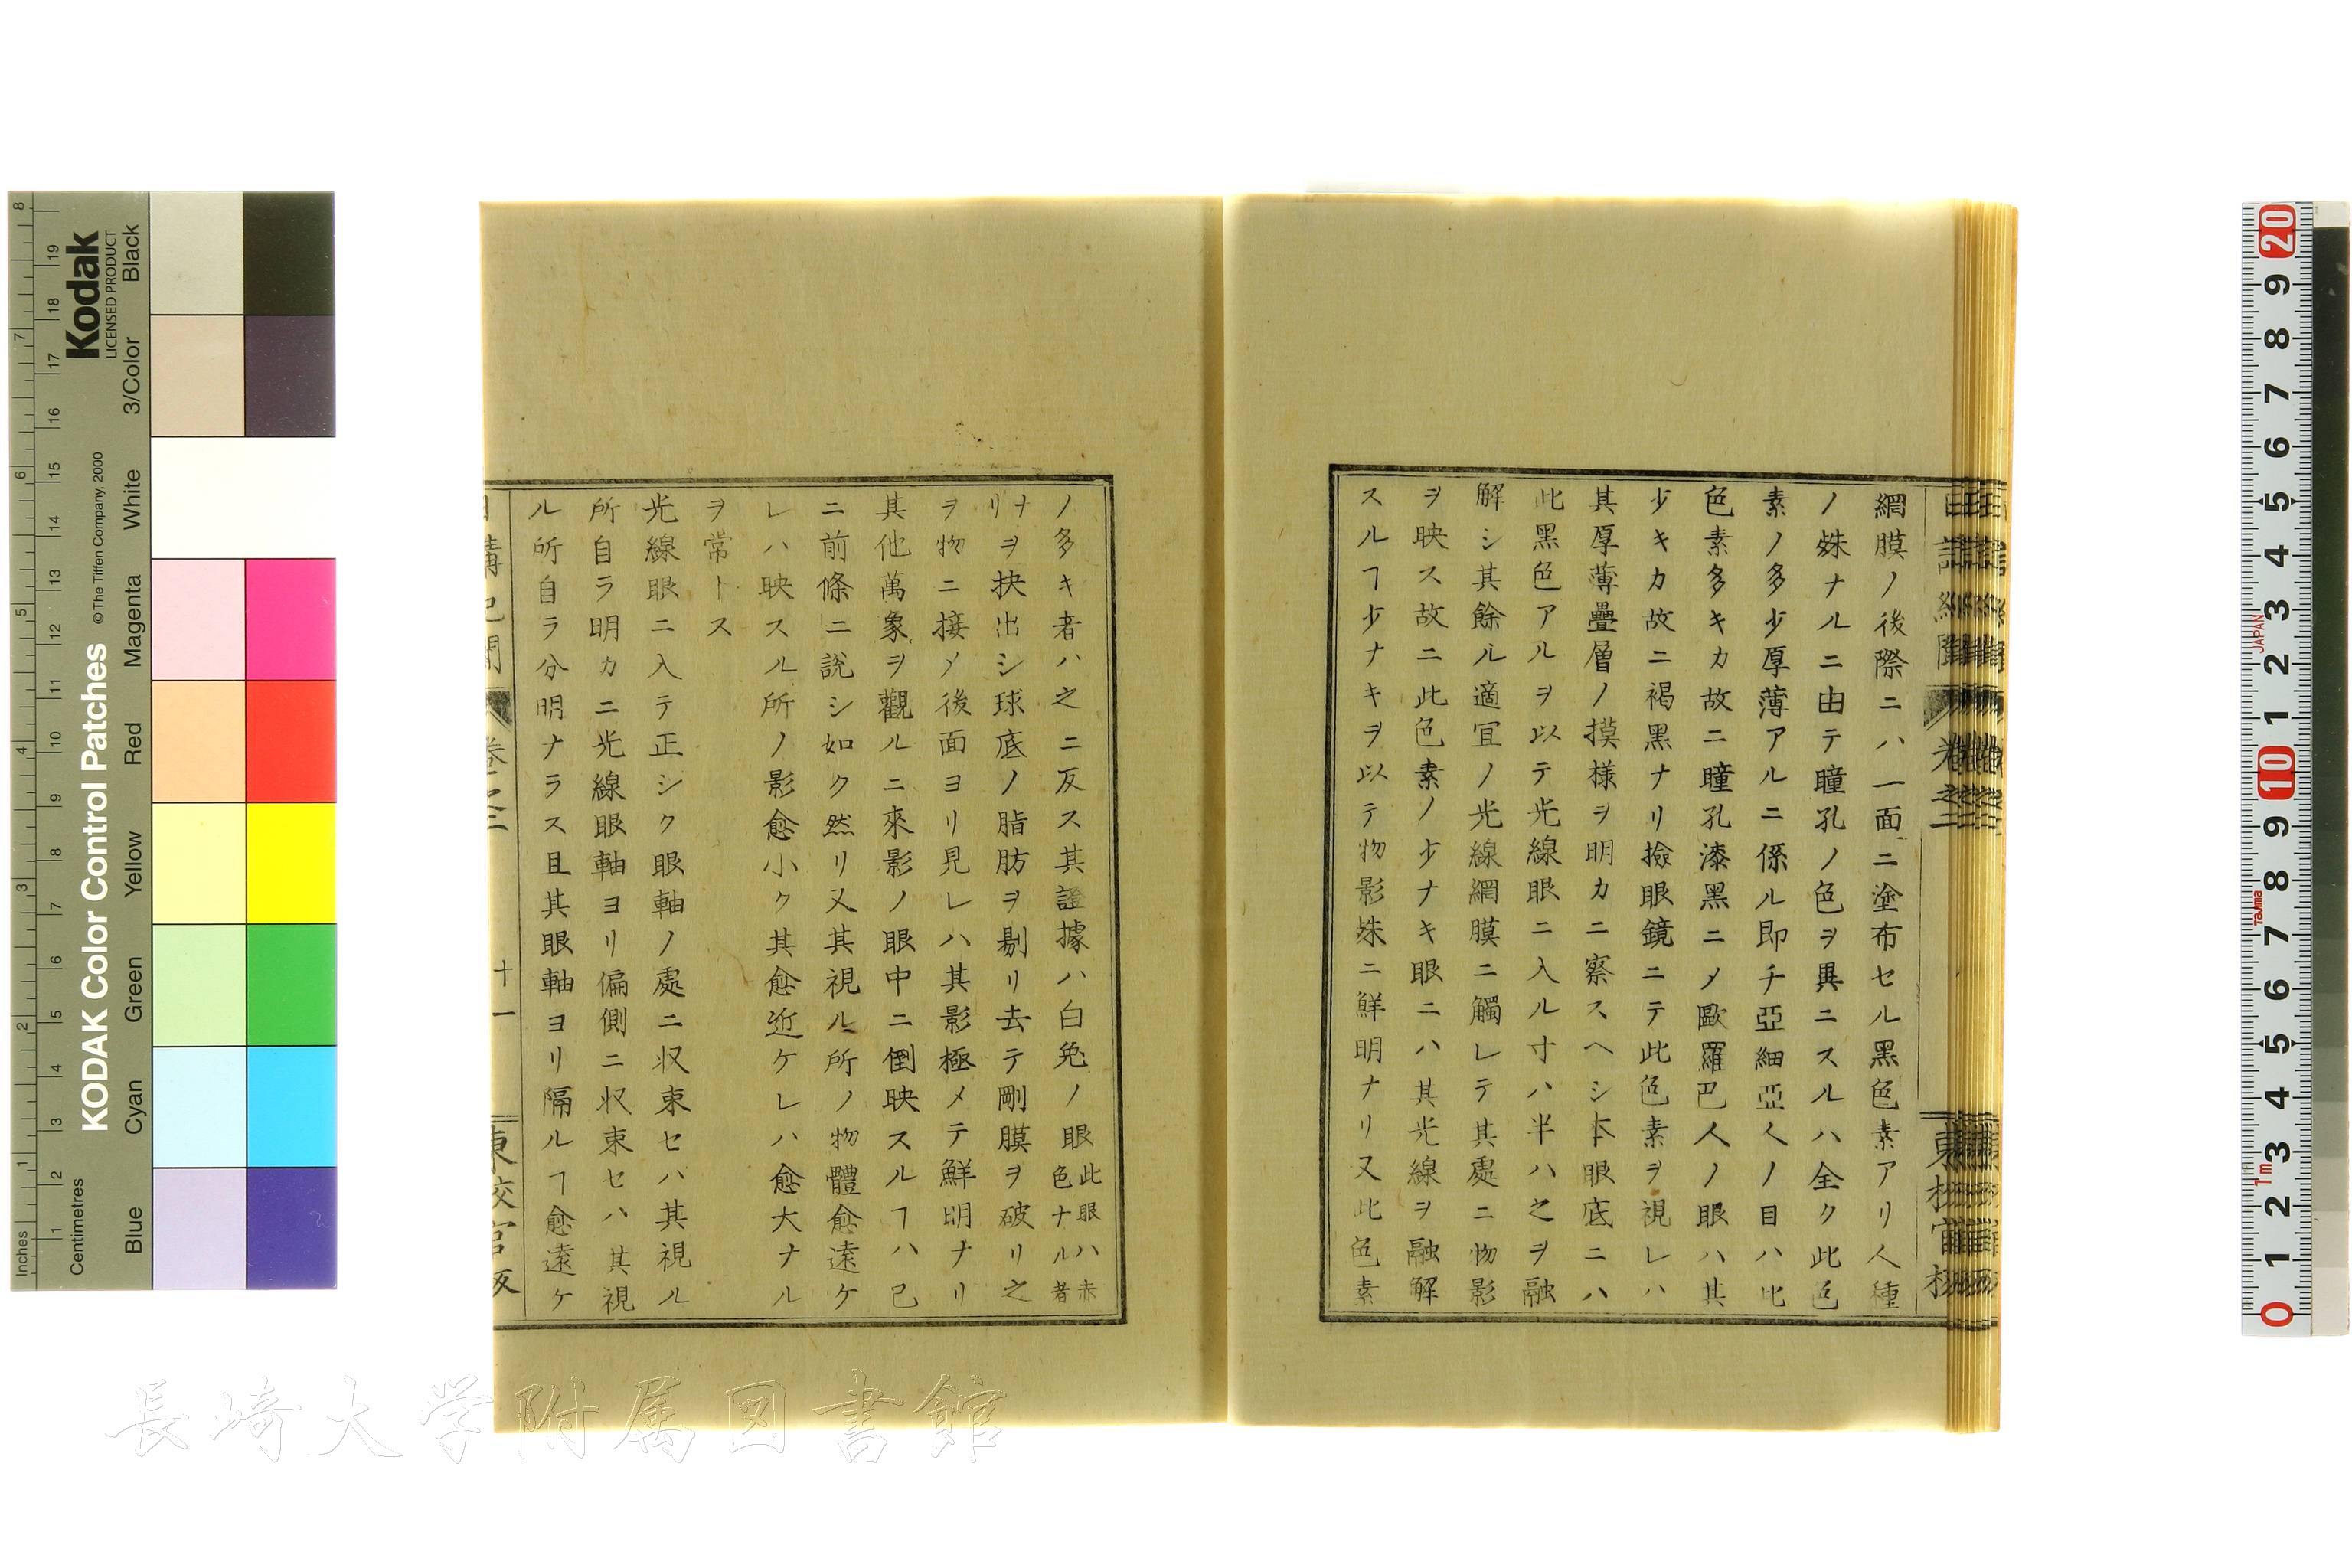 網膜ノ後際ニハ一面ニ塗布セル黒色素アリ人種
ノ殊ナルニ由テ瞳孔ノ色ヲ異ニスルハ全ク此色
素ノ多少厚薄アルニ係ル即チ亞細亞人ノ目ハ比
色素多キカ故ニ瞳孔漆黒ニメ歐羅巴人ノ眼ハ其
少キカ故ニ褐黒ナリ撿眼鏡ニテ此色素ヲ視レハ
其厚薄疊層ノ摸様ヲ明カニ察スヘシ本眼底ニハ
此黒色アルヲ以テ光線眼ニ入ル寸ハ半ハ之ヲ融
解シ其餘ル適冝ノ光線網膜ニ觸レテ其處ニ物影
ヲ映ス故ニ此色素ノ少ナキ眼ニハ其光線ヲ融解
スルヿ少ナキヲ以テ物影殊ニ鮮明ナリ又此色素
ノ多キ者ハ之ニ反ス其證據ハ白兔ノ眼此眼ハ赤色ナル者
ナリヲ抉出シ球底ノ脂肪ヲ剔リ去テ剛膜ヲ破リ之
ヲ物ニ接メ後面ヨリ見レハ其影極メテ鮮明ナリ
其他萬象ヲ觀ルニ來影ノ眼中ニ倒映スルヿハ己
ニ前條ニ説シ如ク然リ又其視ル所ノ物體愈遠ケ
レハ映スル所ノ影愈小ク其愈近ケレハ愈大ナル
ヲ常トス
光線眼ニ入テ正シク眼軸ノ處ニ収束セハ其視ル
所自ラ明カニ光線眼軸ヨリ偏側ニ収束セハ其視
ル所自ラ分明ナラス且其眼軸ヨリ隔ルヿ愈遠ケ
卷之二
十一
東校官版
長崎大学附属図書館
KODAK Color Control Patches
© The Tiffen Company, 2000
Kodak
LICENSED PRODUCT
Inches
Centimetres
Blue
Cyan
Green
Yellow
Red
Magenta
White
3/Color
Black
JAPAN
Tajima
1m